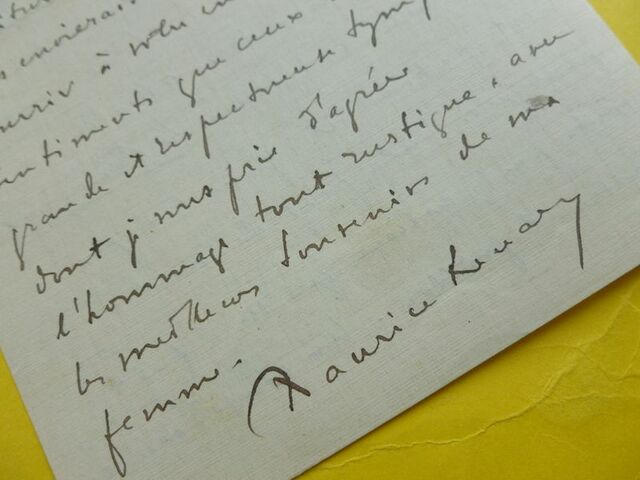 à votre
sentiments que ceux
grande et respectueuse symp
dont je vous prie d'agréer
l'hommage tout rustique, avec
les meilleurs souvenirs de ma
femme.
Maurice